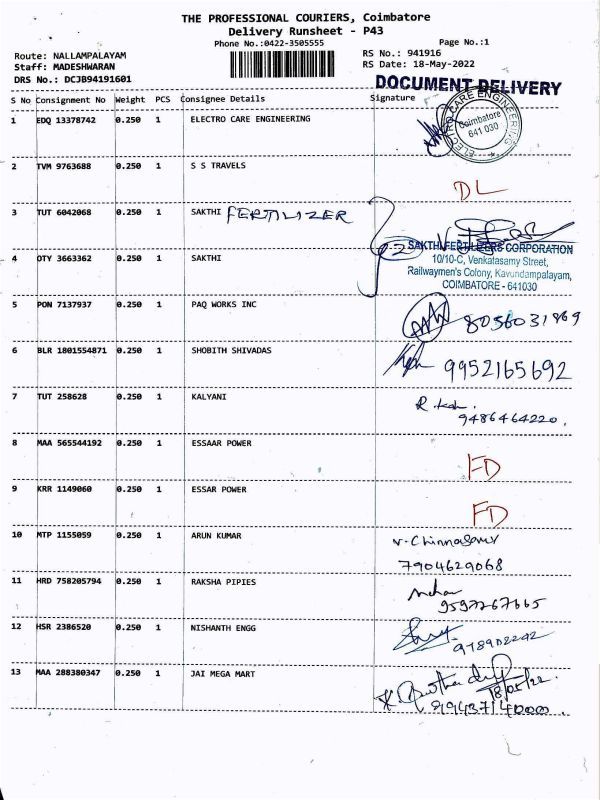 THE PROFESSIONAL COURIERS, Coimbatore
Delivery Runsheet - P43
Phone No.:0422-3505555
Page No.:1
Route: NALLAMPALAYAM
RS No.: 941916
Staff: MADESHWARAN
RS Date: 18-May-2022
DRS No.: DCJB94191601
DOCUMENT DELIVERY
S No Consignment No Weight PCS Consignee Details Signature
1 EDQ 13378742 0.250 1 ELECTRO CARE ENGINEERING
ELECTRO CARE ENGINEERING
Coimbatore
641 030
2 TVM 9763688 0.250 1 S S TRAVELS
DL
3 TUT 6042068 0.250 1 SAKTHI FERTILIZER
SAKTHI FERTILIZERS CORPORATION
10/10-C, Venkatasamy Street,
Railwaymen's Colony, Kavundampalayam,
COIMBATORE - 641030
4 OTY 3663362 0.250 1 SAKTHI
5 PON 7137937 0.250 1 PAQ WORKS INC
6 BLR 1801554871 0.250 1 SHOBITH SHIVADAS 9952165692
7 TUT 258628 0.250 1 KALYANI
9486464220.
8 MAA 565544192 0.250 1 ESSAAR POWER
FD
9 KRR 1149060 0.250 1 ESSAR POWER
FD
10 MTP 1155059 0.250 1 ARUN KUMAR
7904629068
11 HRD 758205794 0.250 1 RAKSHA PIPIES
12 HSR 2386520 0.250 1 NISHANTH ENGG
13 MAA 288380347 0.250 1 JAI MEGA MART
18/05/22